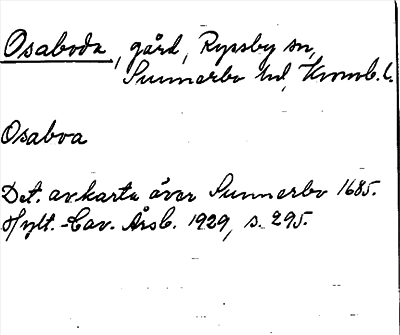 Osaboda, gård, Ryssby sn,
Sunnerbo hd, Kronob. l.
Osaboa
Det. av karta över Sunnerbo 1685.
Hylt.-Cav. Årsb. 1929, s. 295.